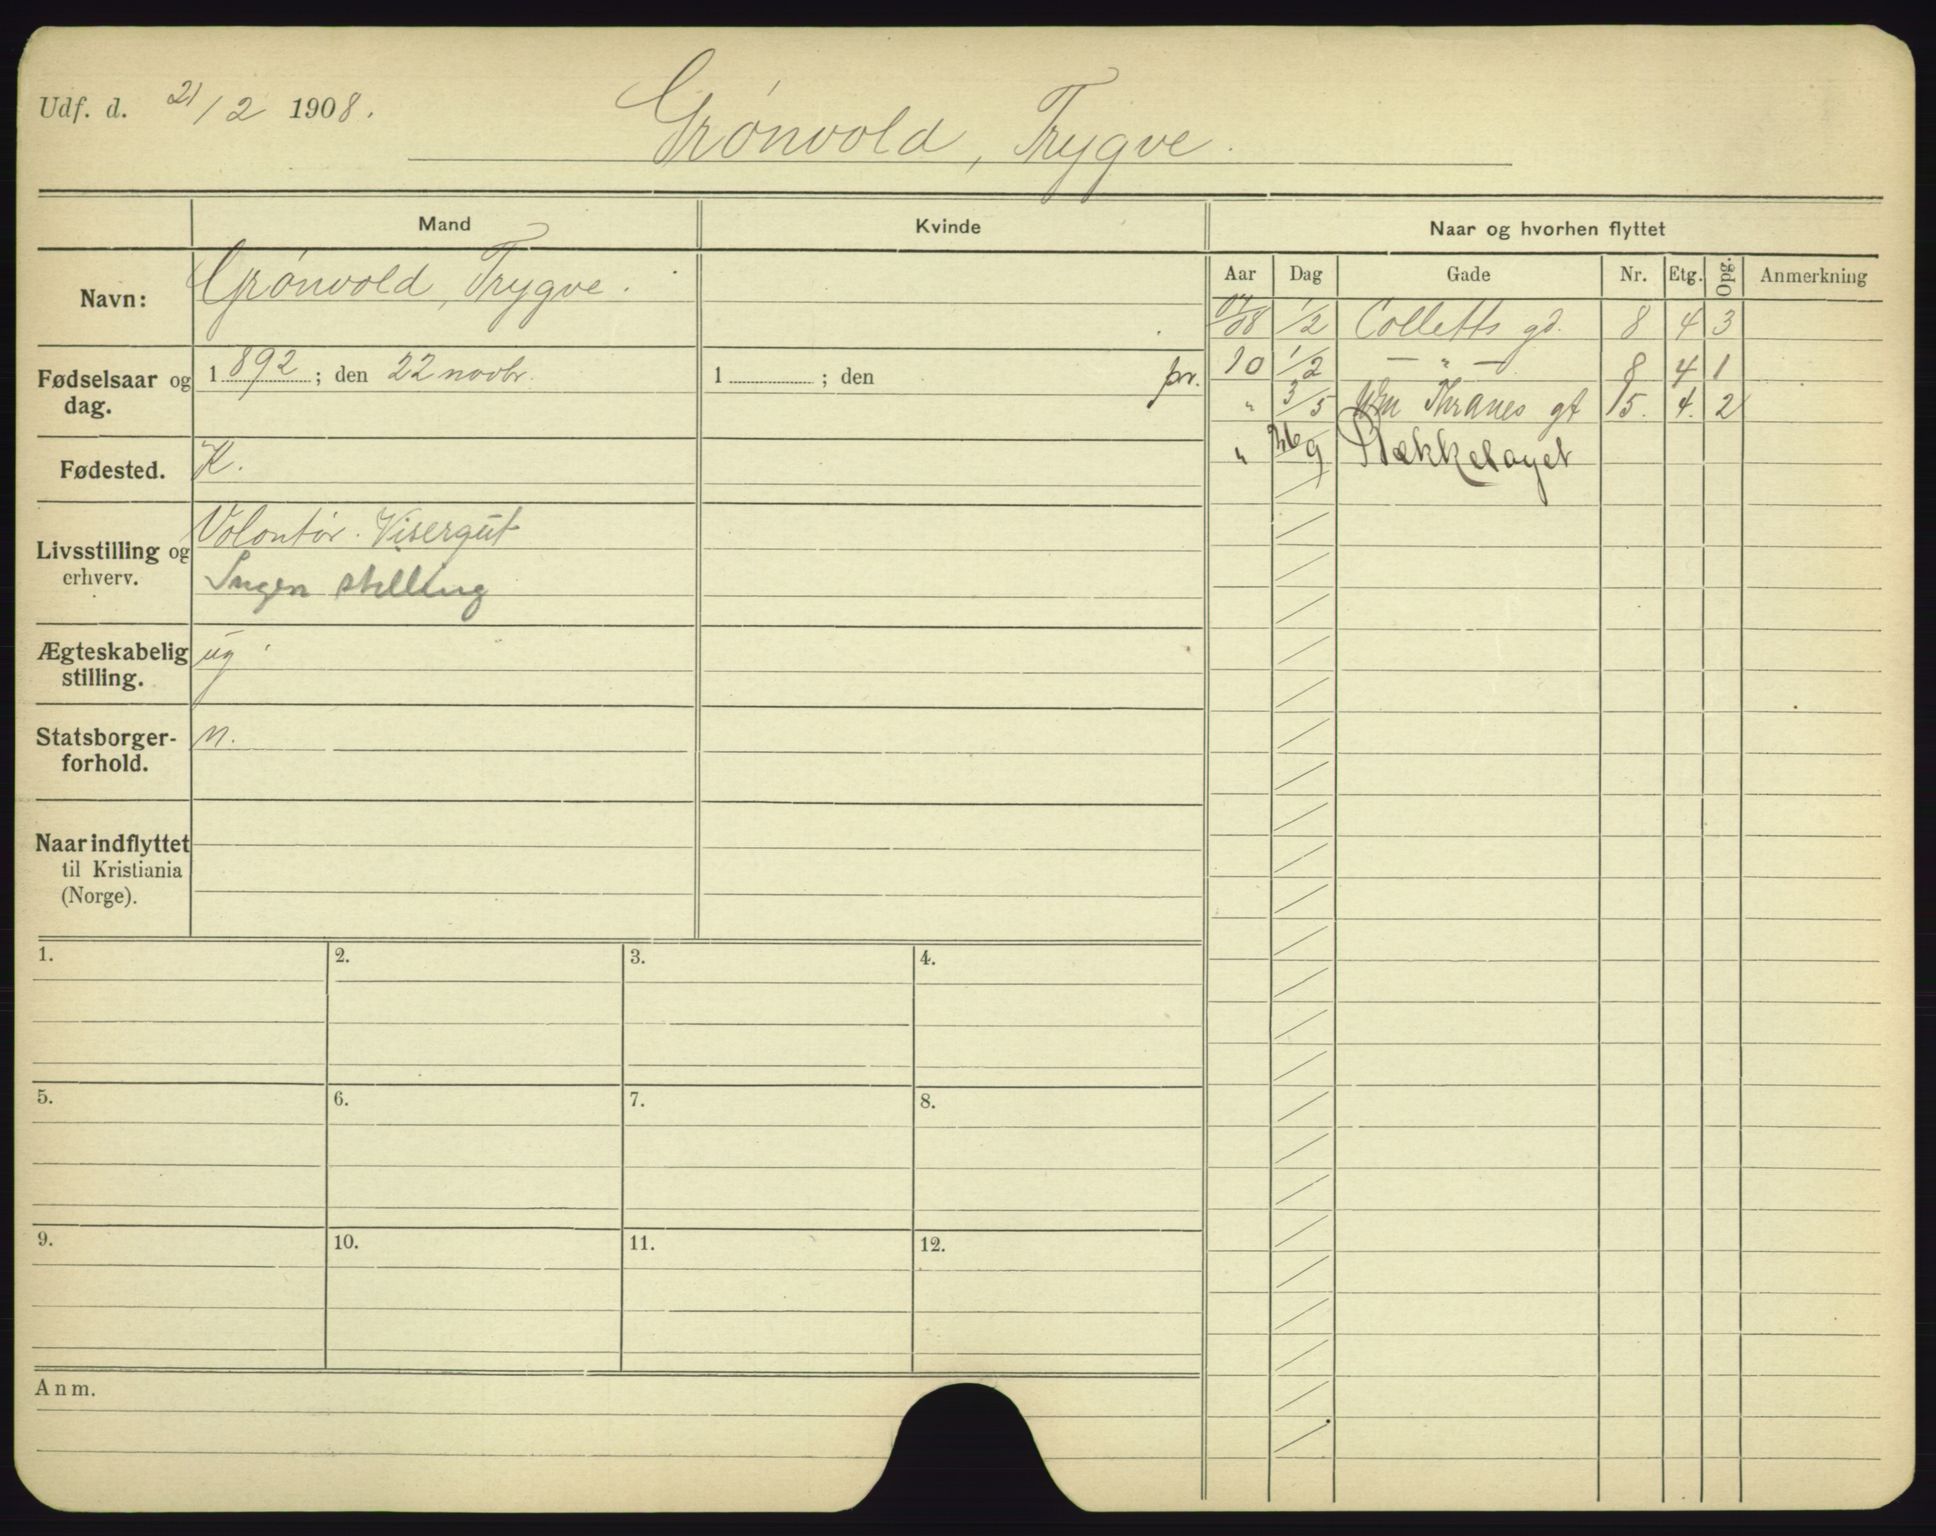 Udf. d. 21/2 1908.
Grønvold, Trygve.
Mand
Kvinde
Naar og hvorhen flyttet
Navn: Grønvold, Trygve.
Fødselsaar og dag. 1892; den 22 novbr.
1 ; den
Fødested. K.
Livsstilling og erhverv. Volontør. Visergut
Ingen stilling
Ægteskabelig stilling. ug
Statsborger-forhold. n.
Naar indflyttet til Kristiania (Norge).
Aar Dag Gade Nr. Etg. Opg. Anmerkning
08 1/2 Colletts gd. 8 4 3
pr. 10 1/2 — " — 8 4 1
" 3/5 Thranes gt 15. 4. 2
" 9 Bækkelaget
1. 2. 3. 4.
5. 6. 7. 8.
9. 10. 11. 12.
Anm.